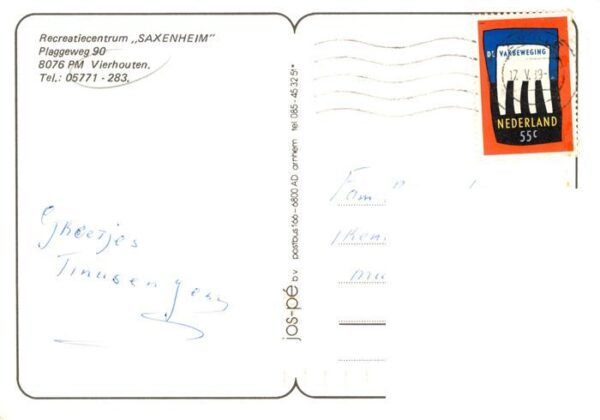 Recreatiecentrum „SAXENHEIM"
Plaggeweg 90
8076 PM Vierhouten.
Tel.: 05771 - 283.
Groetjes
Tinus en
jos-pé b.v. postbus 166 - 6800 AD arnhem tel. 085-45 32 51*
DE VAKBEWEGING
NEDERLAND
55c
Fam.